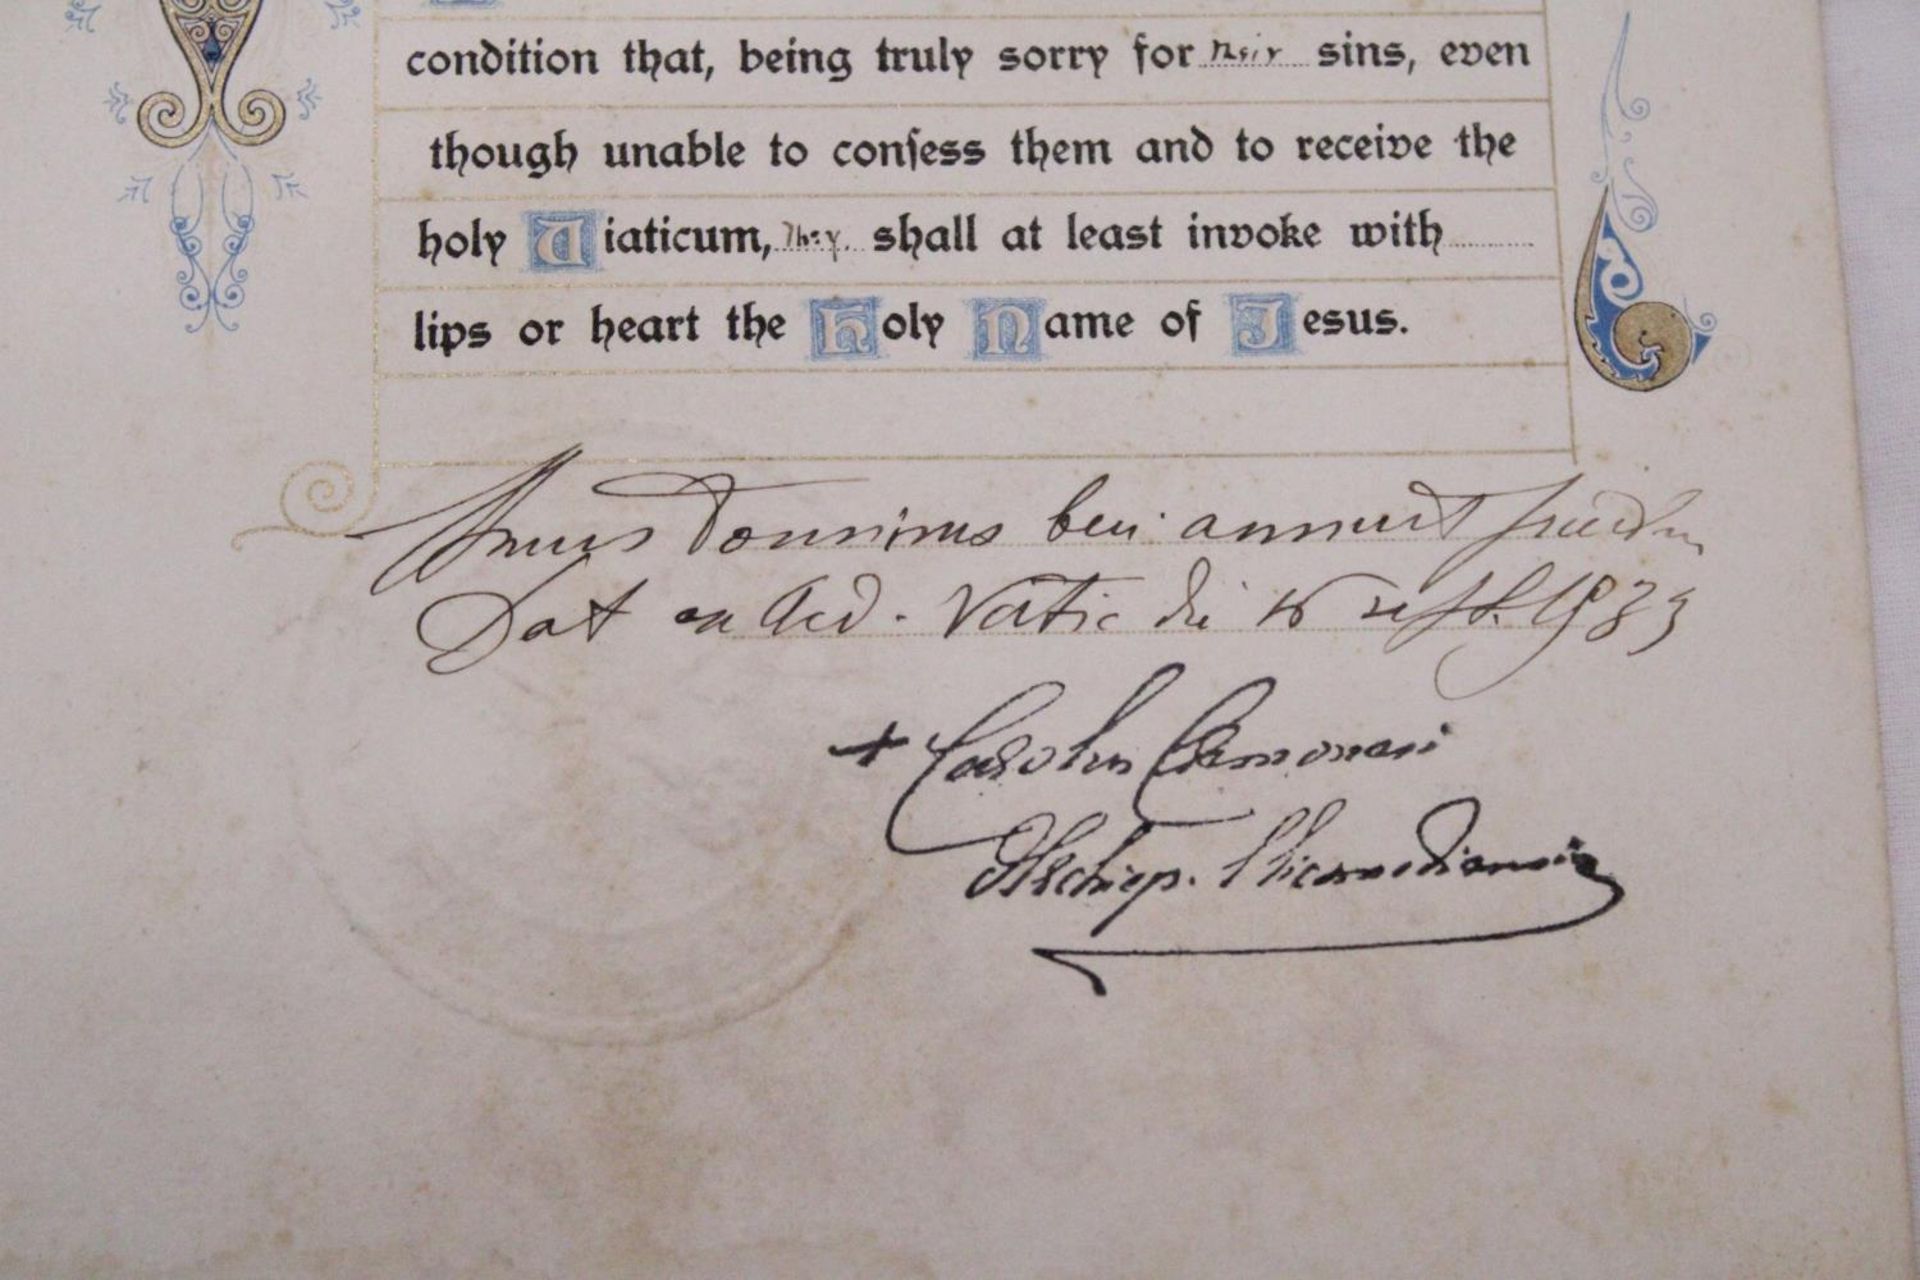 condition that, being truly sorry for their sins, even
though unable to confess them and to receive the
holy Viaticum, they shall at least invoke with
lips or heart the Holy Name of Jesus.
Dominus annuit
Dat. ex Aed. Vatic. die 16 sept. 1933
+ Carolus Cremonesi
Archiep. Nicomediensis